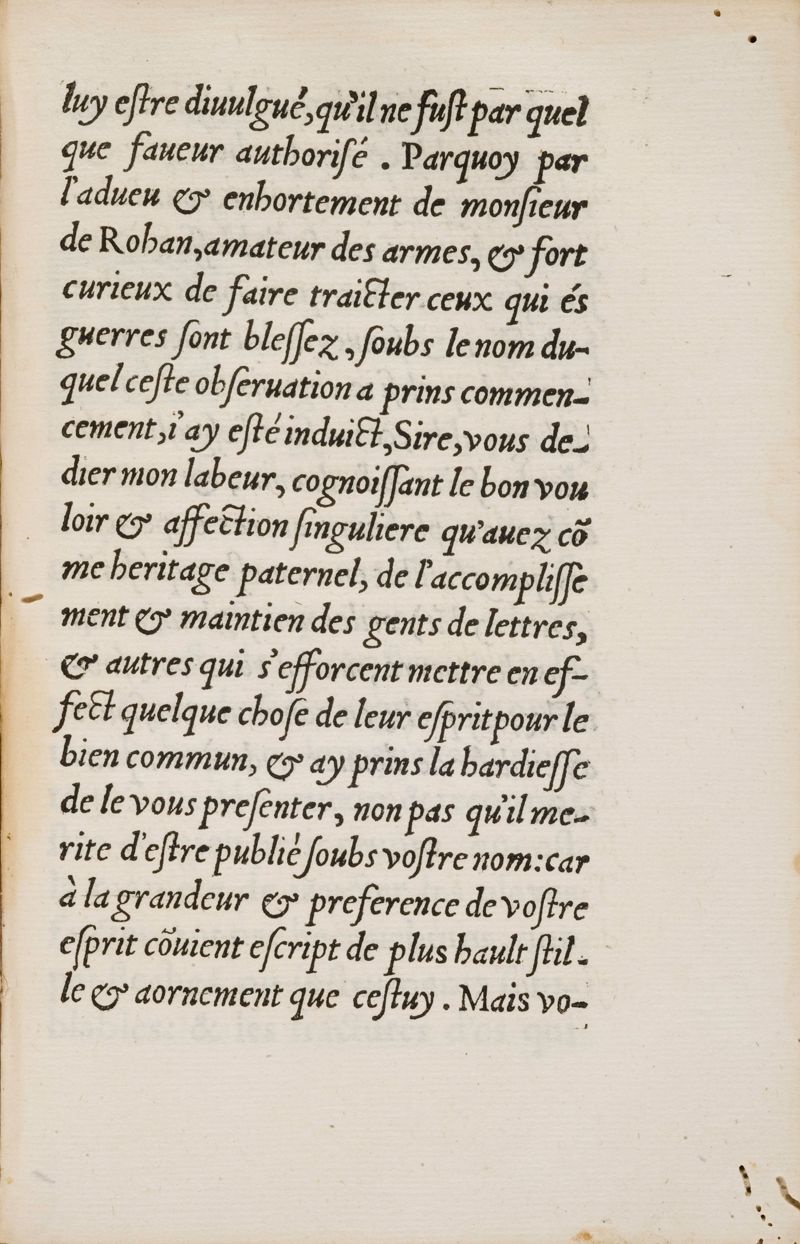 luy eſtre diuulgué, qu'il ne fuſt par quel
que faueur authoriſé . Parquoy par
l'adueu & enhortement de monſieur
de Rohan, amateur des armes, & fort
curieux de faire traicter ceux qui és
guerres ſont bleſſez , ſoubs le nom du-
quel ceſte obſeruation a prins commen-
cement, i'ay eſté induict, Sire, vous de-
dier mon labeur, cognoiſſant le bon vou
loir & affection ſinguliere qu'auez cõ
me heritage paternel, de l'accompliſſe
ment & maintien des gents de lettres,
& autres qui s'efforcent mettre en ef-
fect quelque choſe de leur eſprit pour le
bien commun, & ay prins la hardieſſe
de le vous preſenter, non pas qu'il me-
rite d'eſtre publiè ſoubs voſtre nom: car
à la grandeur & preference de voſtre
eſprit cõuient eſcript de plus hault ſtil-
le & aornement que ceſtuy . Mais vo-